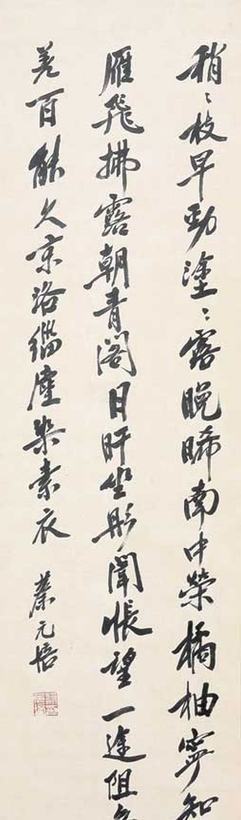 稍〻枝早勁塗〻露晚晞南中榮橘柚寧知
雁飛拂露朝青閣日旰坐彤聞悵望一途阻
差百能久京洛緇塵染素衣
蔡元培